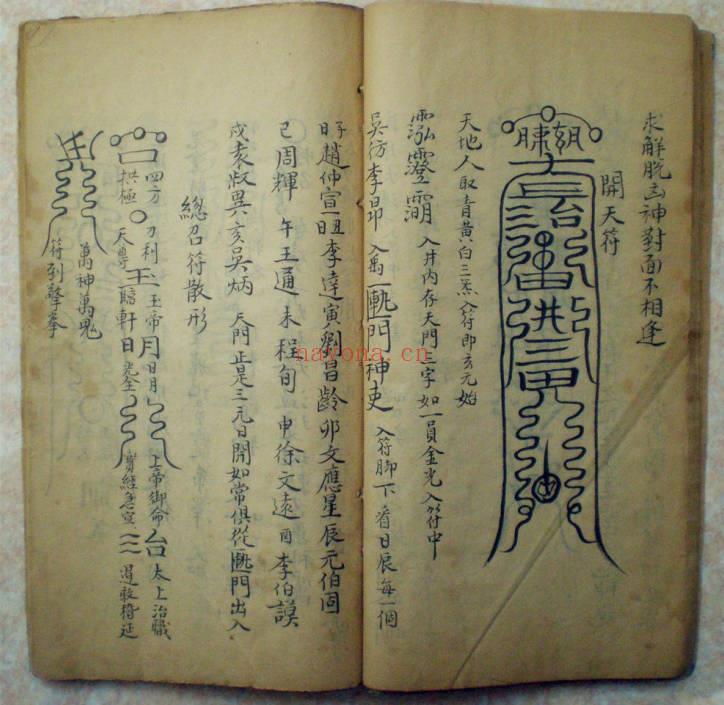 求解脫凶神對面不相逢
開天符
天地人取青黃白三炁入符即玄元始
入井內存天門二字如一員金光入符中
李昂 入 門神吏 入符脚下看日辰每一個
子趙仲宣丑李達寅劉昌齡卯文應星辰元伯固
巳周輝 午王通 未程旬 申徐文遠酉李伯謨
戌袁叔異亥吳炳 天門正是三元日開如常俱從 門出入
總召符散形
口四方拱極 刀利天尊 玉玉帝 瞻軒 月日月 日
上帝御命 台太上治職 寶經急宣
萬神萬鬼
符到擎拳
nayona.cn